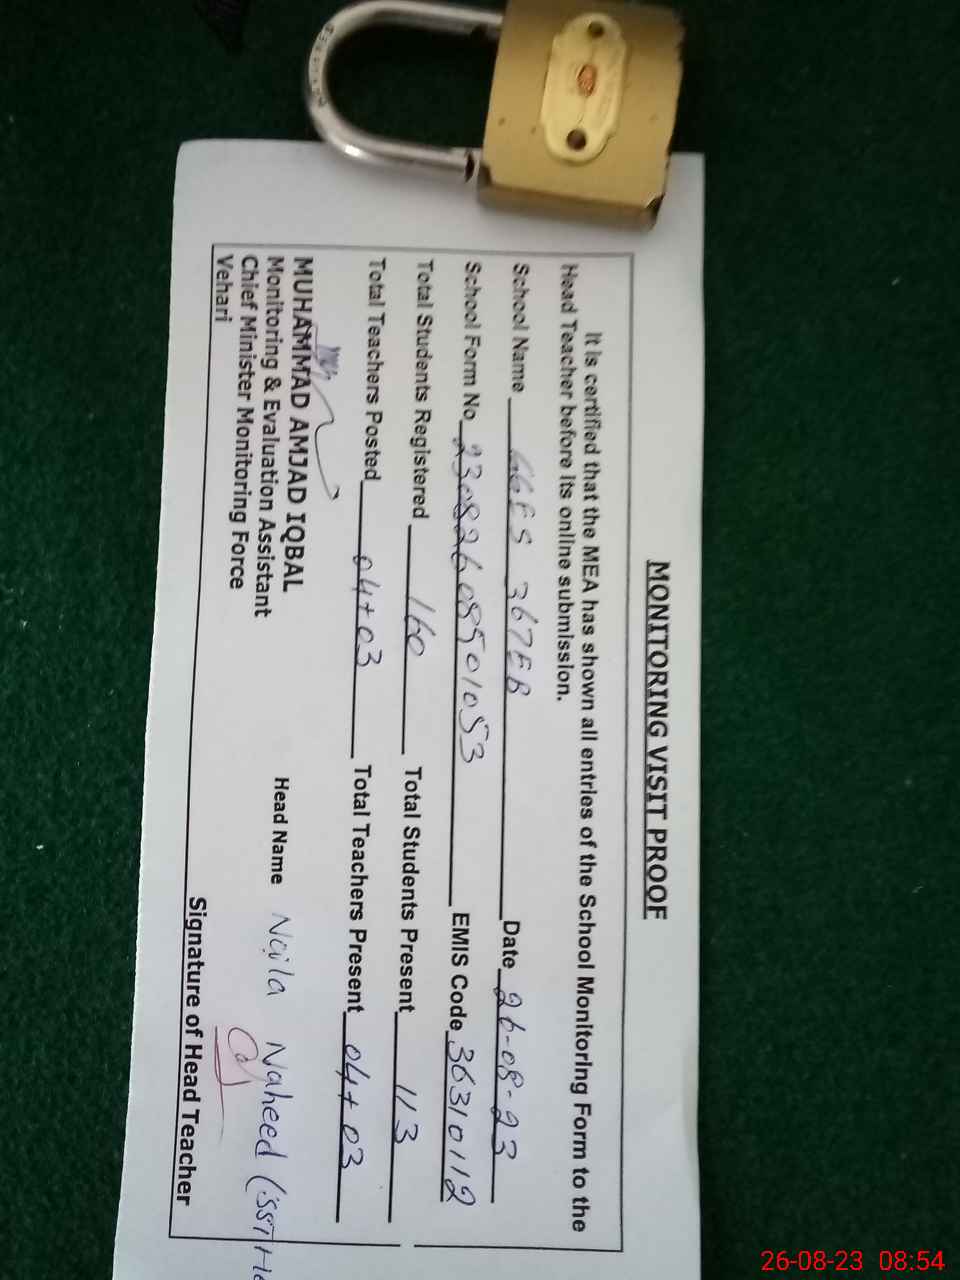 MONITORING VISIT PROOF
It is certified that the MEA has shown all entries of the School Monitoring Form to the
Head Teacher before its online submission.
School Name GGES 367EB Date 26-08-23
School Form No 23082608501053 EMIS Code 36310112
Total Students Registered 160 Total Students Present 113
Total Teachers Posted 04+03 Total Teachers Present 04+03
MUHAMMAD AMJAD IQBAL
Monitoring & Evaluation Assistant
Chief Minister Monitoring Force
Vehari
Head Name Naila Naheed (SST
Signature of Head Teacher
26-08-23 08:54